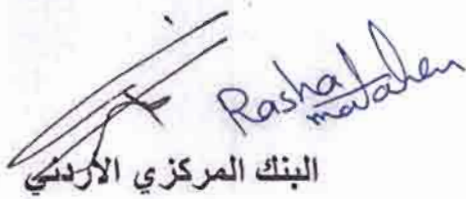 Rasha
matahen
البنك المركزي الأردني